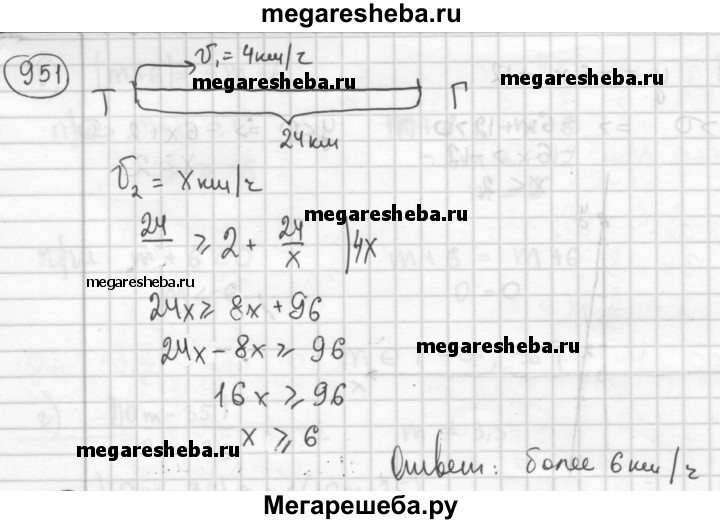 megaresheba.ru
951
v₁ = 4км/ч
megaresheba.ru
megaresheba.ru
Т Г
24км
v₂ = x км/ч
megaresheba.ru
24/ ≥ 2 + 24/x |4x
megaresheba.ru
24x ≥ 8x + 96
24x - 8x ≥ 96
megaresheba.ru
16x ≥ 96
x ≥ 6
megaresheba.ru
Ответ: более 6 км/ч
Мегарешеба.ру